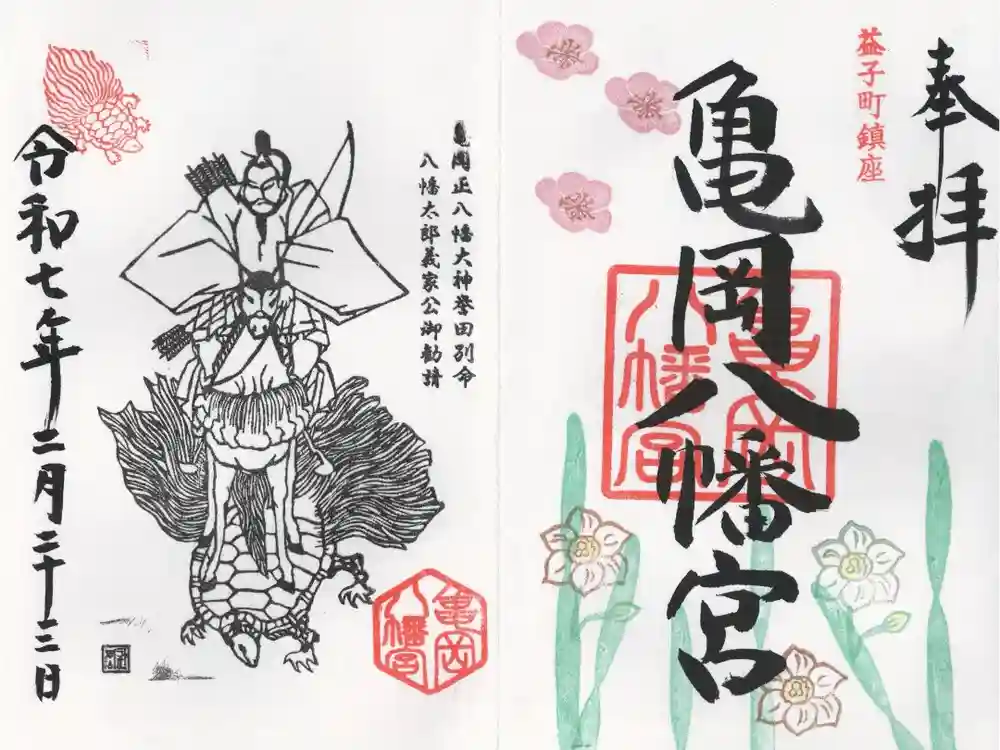 奉拝
益子町鎮座
亀岡八幡宮
亀岡八幡宮
亀岡正八幡大神誉田別命
八幡太郎義家公御勧請
令和七年二月二十三日
亀岡八幡宮